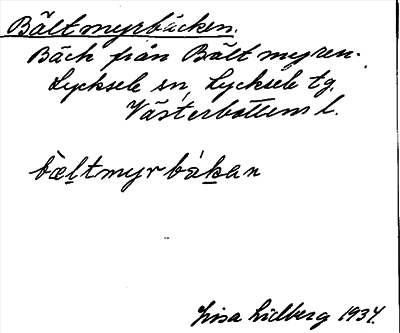 Bältmyrbäcken.
Bäck från Bältmyren.
Lycksele sn, Lycksele tg.
Västerbottens l.
bæltmyrbäkan
Lisa Lidberg 1934.